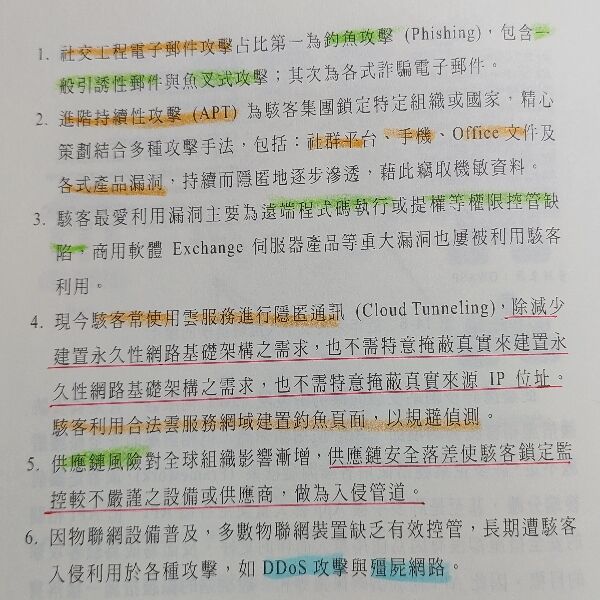 1. 社交工程電子郵件攻擊占比第一為釣魚攻擊 (Phishing)，包含一
般引誘性郵件與魚叉式攻擊；其次為各式詐騙電子郵件。
2. 進階持續性攻擊 (APT) 為駭客集團鎖定特定組織或國家，精心
策劃結合多種攻擊手法，包括：社群平台、手機、Office 文件及
各式產品漏洞，持續而隱匿地逐步滲透，藉此竊取機敏資料。
3. 駭客最愛利用漏洞主要為遠端程式碼執行或提權等權限控管缺
陷，商用軟體 Exchange 伺服器產品等重大漏洞也屢被利用駭客
利用。
4. 現今駭客常使用雲服務進行隱匿通訊 (Cloud Tunneling)，除減少
建置永久性網路基礎架構之需求，也不需特意掩蔽真實來建置永
久性網路基礎架構之需求，也不需特意掩蔽真實來源 IP 位址。
駭客利用合法雲服務網域建置釣魚頁面，以規避偵測。
5. 供應鏈風險對全球組織影響漸增，供應鏈安全落差使駭客鎖定監
控較不嚴謹之設備或供應商，做為入侵管道。
6. 因物聯網設備普及，多數物聯網裝置缺乏有效控管，長期遭駭客
入侵利用於各種攻擊，如 DDoS 攻擊與殭屍網路。